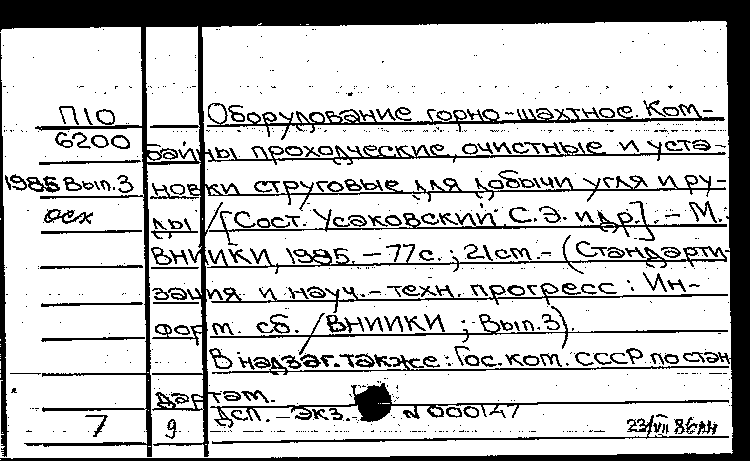 П10
6200
1985 Вып.3
осх
Оборудование горно-шахтное. Ком-
байны проходческие, очистные и уста-
новки струговые для добычи угля и ру-
ды / [Сост. Усаковский С.Э. и др.]. - М.:
ВНИИКИ, 1985. - 77с.; 21см. - (Стандарти-
зация и науч.-техн. прогресс: Ин-
форм. сб. / ВНИИКИ; Вып.3).
В надзаг. также: Гос. ком. СССР по стан
дартам.
Дсп. Экз. N 000147
7 9
23/VII 86